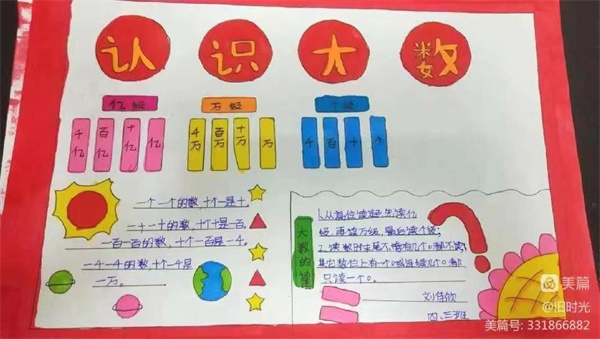 认识大数
亿级
万级
个级
千亿 百亿 十亿 亿
千万 百万 十万 万
千 百 十 个
一个一个的数,十个一是十。
一十一十的数,十个十是百,
一百一百的数,十个一百是一千。
一千一千的数,十个一千是
一万。
大数的
1.从高位读起,先读亿
级,再读万级,最后读个级;
2.读数时末尾不管有几个0都不读;
其它数位上有一个0或连续几个0都
只读一个0。
四、三班
美篇
@旧时光
美篇号: 331866882